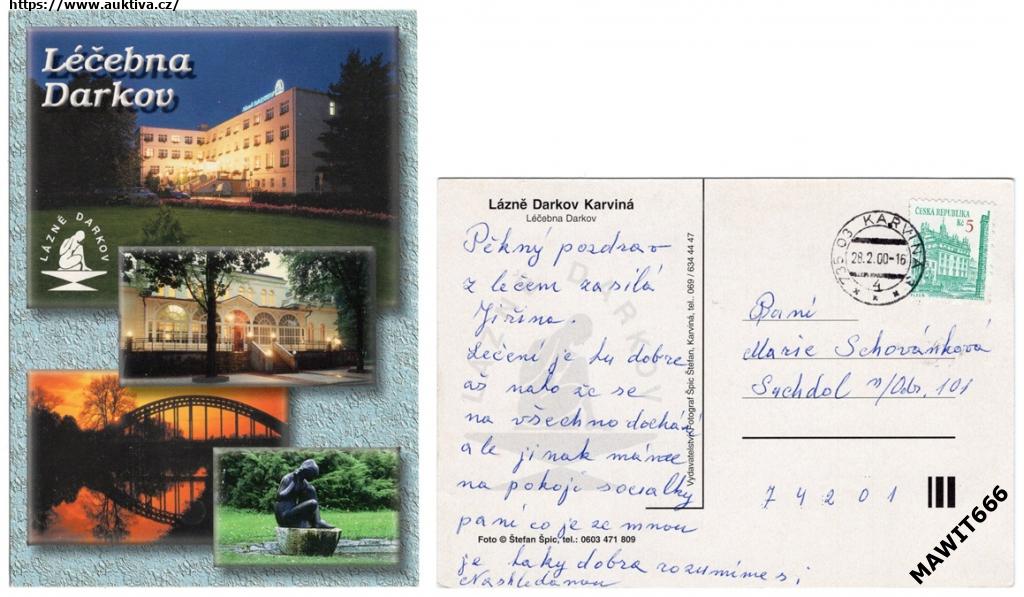 https://www.auktiva.cz/
Léčebna
Darkov
LÁZNĚ DARKOV
Lázně Darkov Karviná
Léčebna Darkov
Pěkný pozdrav
z léčem zasílá
Jiřina.
Léčení je tu dobré
až na to že se
na všechno dochází
ale jinak máme
na pokoji socialky
paní co je ze mnou
je taky dobra rozumíme si
Nashledanou
Foto © Štefan Špic, tel.: 0603 471 809
LÁZNĚ DARKOV
Vydavatelství Fotograf Špic Štefan, Karviná, tel.: 069 / 634 44 47
735 03 KARVINÁ 3
28.2.00-16
4
ČESKÁ REPUBLIKA
Kč 5
PLZEŇ
Paní
Marie Schovánková
Suchdol n/Odr. 101
74201
MAWIT666